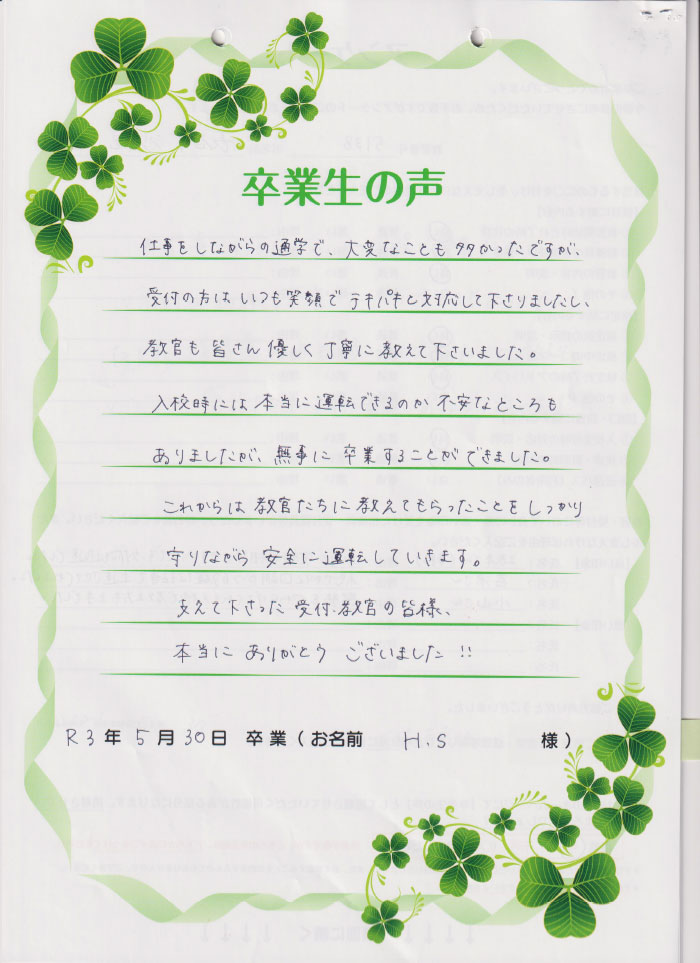 卒業生の声
仕事をしながらの通学で、大変なことも多かったですが、
受付の方はいつも笑顔でテキパキと対応して下さりましたし、
教官も皆さん優しく丁寧に教えて下さいました。
入校時には本当に運転できるのか不安なところも
ありましたが、無事に卒業することができました。
これからは教官たちに教えてもらったことをしっかり
守りながら安全に運転していきます。
支えて下さった受付、教官の皆様、
本当にありがとうございました!!
R3年5月30日 卒業(お名前 H.S 様)